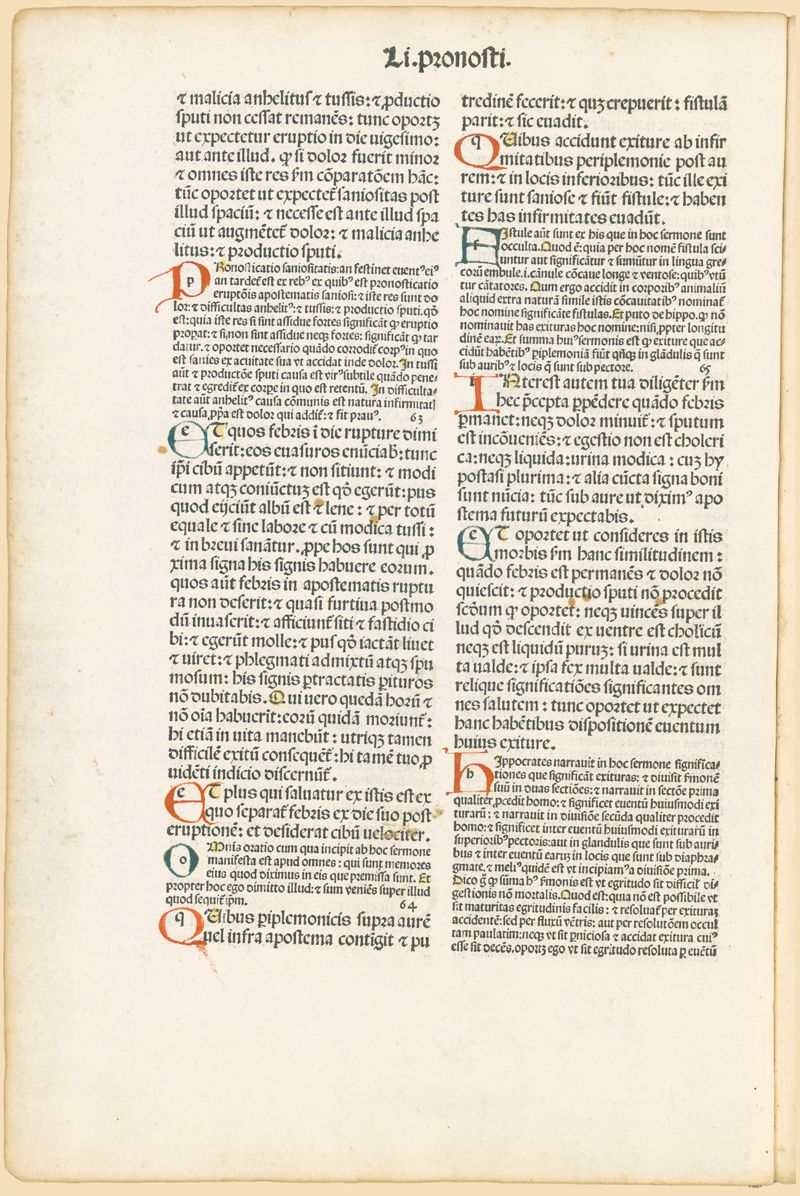 Li.pronosti.
⁊ malicia anhelitus ⁊ tussis: ⁊ ꝓductio
sputi non cessat remanēs: tunc oportꝫ
ut expectetur eruptio in die uigesimo:
aut ante illud. ꝙ si dolor fuerit minor
⁊ omnes iste res ẜm cōparatōem hāc:
tūc oportet ut expectet̄ saniositas post
illud spaciū: ⁊ necesse est ante illud spa
ciū ut augmētet̄ dolor: ⁊ malicia anhe
litus: ⁊ productio sputi.
p
PRonosticatio saniositatis: an festinet euentꝰ eiꝰ
an tardet̄ est ex rebꝰ ex quibꝰ est pronosticatio
eruptōis apostematis saniosi: ⁊ iste res sunt do
lor: ⁊ difficultas anhelitꝰ: ⁊ tussis: ⁊ productio sputi. qđ
est: quia iste res si sint assidue fortes significāt ꝙ eruptio
propat: ⁊ si non sint assidue neqꝫ fortes: significāt ꝙ tar
datur. ⁊ oportet necessario quādo corrodit̄ corpꝰ in quo
est sanies ex acuitate sua vt accidat inde dolor. In tussi
aūt ⁊ productōe sputi causa est virꝰ subtile quādo pene-
trat ⁊ egredit̄ ex corpe in quo est retentū. In difficulta-
tate aūt anhelitꝰ causa cōmunis est natura infirmitatꝭ
⁊ causa ꝓpa est dolor qui addit̄: ⁊ fit prauꝰ. 63
e
ET quos febris ī die rupture dimi
serit: eos euasuros enūciab̄: tunc
ip̄i cibū appetūt: ⁊ non sitiunt: ⁊ modi
cum atqꝫ coniūctuꝫ est qđ egerūt: pus
quod eijciūt albū est ⁊ lene: ⁊ per totū
equale ⁊ sine labore ⁊ cū modica tussi:
⁊ in breui sanātur. ꝓpe hos sunt qui ꝓ
xima signa his signis habuere eorum.
quos aūt febris in apostematis ruptu
ra non deserit: ⁊ quasi furtiua postmo
dū inuaserit: ⁊ afficiunt̄ siti ⁊ fastidio ci
bi: ⁊ egerūt molle: ⁊ pus qđ iactāt liuet
⁊ uiret: ⁊ phlegmati admixtū atqꝫ spu
mosum: his signis ꝑtractatis ꝑituros
nō dubitabis. Qui uero quedā horū ⁊
nō oīa habuerīt: eorū quidā moriunt̄:
hi etiā in uita manebūt: utriqꝫ tamen
difficilē exitū consequēt̄: hi tamē tuo ꝓ
uidēti indicio discernūt̄.
e
ET plus qui saluatur ex istis est ex
quo separat̄ febris ex die suo post
eruptionē: et desiderat cibū uelociter.
o
OMnis oratio cum qua incipit ab hoc sermone
manifesta est apud omnes: qui sunt memores
eius quod diximus in eis que premissa sunt. Et
propter hoc ego dimitto illud: ⁊ sum veniēs super illud
quod sequit̄ ip̄m. 64
q
QUibus ꝑiplemonicis supra aurē
uel infra apostema contigit ⁊ pu
tredinē fecerit: ⁊ quꝫ crepuerit: fistulā
parit: ⁊ sic euadit.
q
QUibus accidunt exiture ab infir
mitatibus periplemonie post au
rem: ⁊ in locis inferioribus: tūc ille exi
ture sunt saniose ⁊ fiūt fistule: ⁊ haben
tes has infirmitates euadūt.
f
FIstule aūt sunt ex his que in hoc sermone sunt
occulta. Quod ē: quia per hoc nomē fistula sci-
untur aut significātur ⁊ sumūtur in lingua gre-
corū embule. i. cānule cōcaue longe ⁊ ventose: quibꝰ vtū
tur cātatores. Qum ergo accidit in corporibꝰ animaliū
aliquid extra naturā simile istis cōcauitatibꝰ nominat̄
hoc nomine significāte fistulas. Et puto de hippo. ꝙ nō
nominauit has exituras hoc nomine: nisi ꝓpter longitu
dinē eaꝝ. Et summa huiꝰ sermonis est ꝙ exiture que ac-
cidūt habētibꝰ ꝑiplemoniā fiūt qn̄qꝫ in glādulis q̄ sunt
sub auribꝰ ⁊ locis q̄ sunt sub pectore. 65
i
INterest autem tua diligēter ẜm
hec p̄cepta ꝑpēdere quādo febris
ꝑmanet: neqꝫ dolor minuit̄: ⁊ sputum
est incōueniēs: ⁊ egestio non est choleri
ca: neqꝫ liquida: urina modica: cuꝫ hy
postasi plurima: ⁊ alia cūcta signa boni
sunt nūcia: tūc sub aure ut diximꝰ apo
stema futurū expectabis.
e
ET oportet ut consideres in istis
morbis ẜm hanc similitudinem:
quādo febris est permanēs ⁊ dolor nō
quiescit: ⁊ productio sputi nō procedit
scđum ꝙ oportet: neqꝫ uincēs super il
lud qđ descendit ex uentre est cholicū
neqꝫ est liquidū puruꝫ: si urina est mul
ta ualde: ⁊ ipsa fex multa ualde: ⁊ sunt
relique significatiōes significantes om
nes salutem: tunc oportet ut expectet
hanc habētibus dispositionē euentum
huius exiture.
h
HIppocrates narrauit in hoc sermone significa-
tiones que significāt exituras: ⁊ diuisit ẜmonē
suū in duas sectiōes: ⁊ narrauit in sectōe prima
qualiter ꝓcedit homo: ⁊ significet euentū huiusmodi exi
turarū: ⁊ narrauit in diuisiōe secūda qualiter procedit
homo: ⁊ significet inter euentū huiusmodi exiturarū in
superioribꝰ pectoris: aut in glandulis que sunt sub auri-
bus ⁊ inter euentū earuꝫ in locis que sunt sub diaphra-
gmate. ⁊ meliꝰ quidē est vt incipiamꝰ a diuisiōe prima.
Dico g̊ ꝙ sūma hꝰ ẜmonis est vt egritudo sit difficil̄ di-
gestionis nō mortalis. Quod est: quia nō est possibile vt
sit maturitas egritudinis facilis: ⁊ resoluat̄ per exituraꝫ
accidentē: sed per fluxū vētris: aut per resolutōem occul
tam paulatim: neqꝫ vt sit ꝑniciosa ⁊ accidat exitura cuiꝰ
esse sit decēs. oportꝫ ergo vt sit egritudo resoluta ꝑ euētū